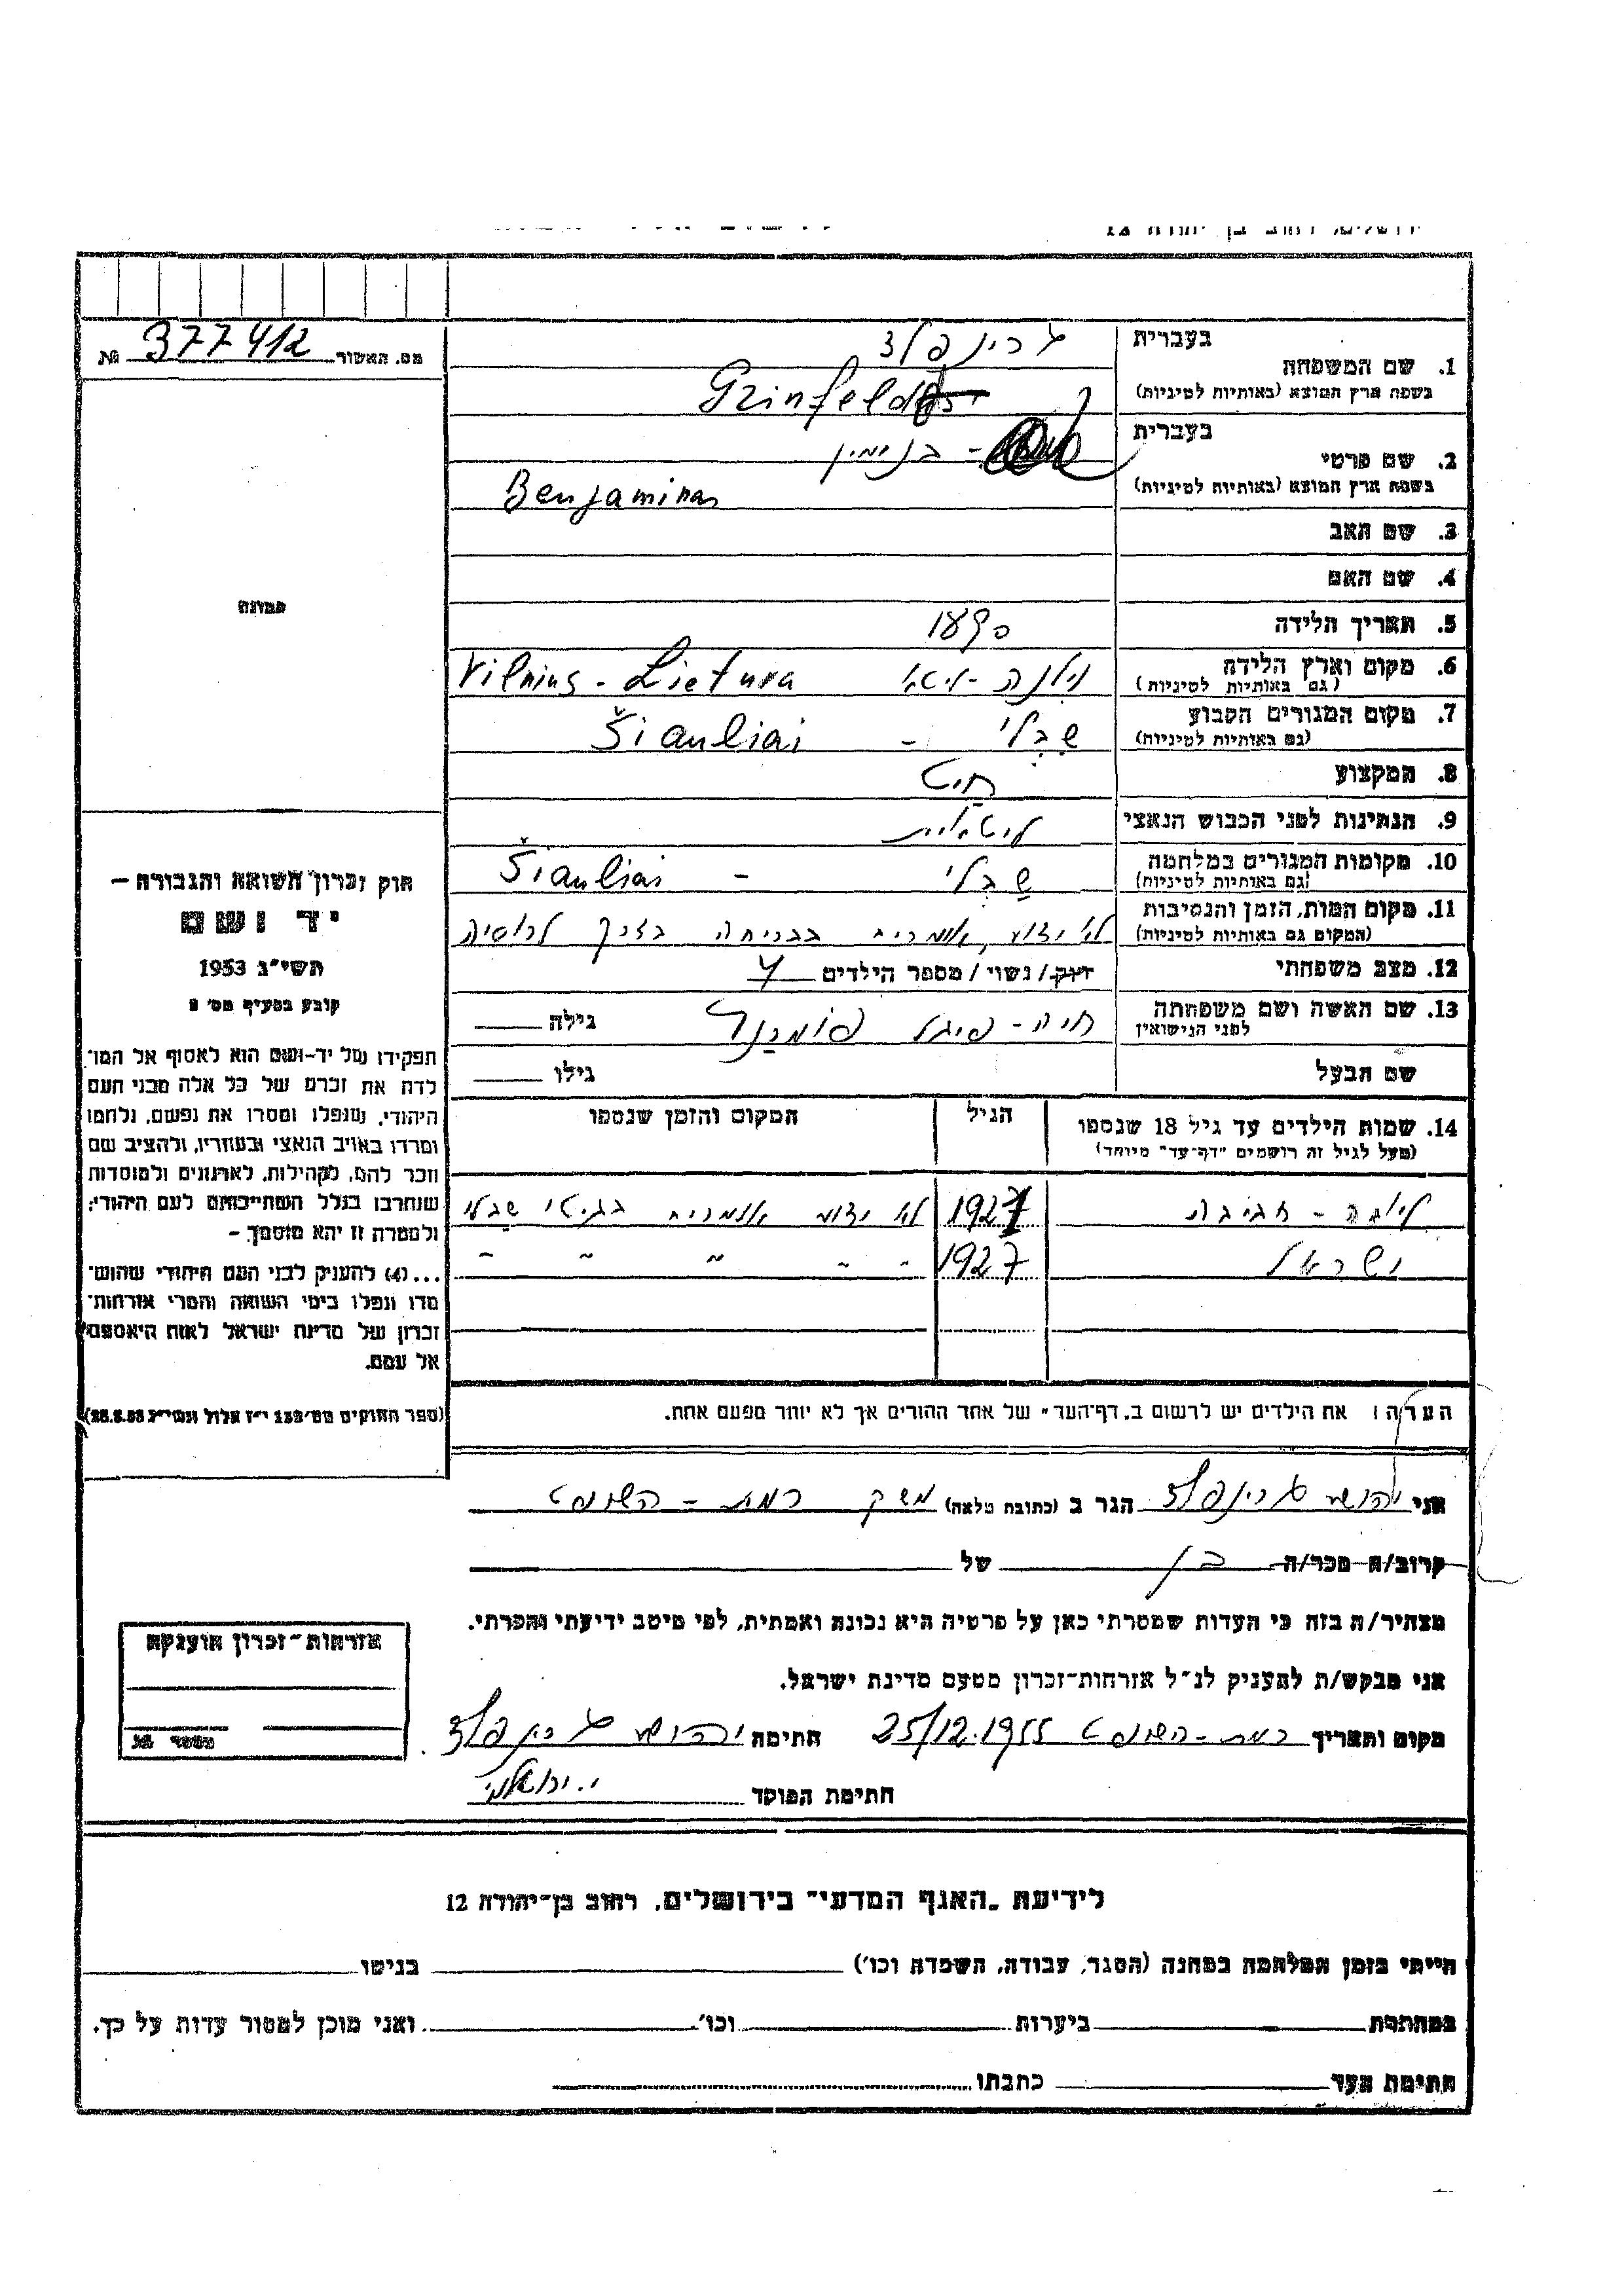 בעברית
גרינפלד
1. שם המשפחה
בשפת ארץ המוצא (באותיות לטיניות)
Grinfeld
בעברית
- בנימין
2. שם פרטי
בשפת ארץ המוצא (באותיות לטיניות)
Benjaminas
3. שם האב
4. שם האם
5. תאריך הלידה 1890
6. מקום וארץ הלידה
(גם באותיות לטיניות)
וילנה - ליטא Vilnius - Lietuva
7. מקום המגורים הקבוע
(גם באותיות לטיניות)
שבלי - Šiauliai
8. המקצוע חיט
9. הנתינות לפני הכבוש הנאצי ליטאית
10. מקומות המגורים במלחמה
(גם באותיות לטיניות)
שבלי - Šiauliai
11. מקום המות, הזמן והנסיבות
(המקום גם באותיות לטיניות)
לא ידוע, אומרים בבריחה בדרך לרוסיה
12. מצב משפחתי רווק / נשוי / מספר הילדים 4
13. שם האשה ושם משפחתה
לפני הנישואין
חיה - פיגל גילה
שם הבעל גילו
14. שמות הילדים עד גיל 18 שנספו הגיל המקום והזמן שנספו
(מעל לגיל זה רושמים "דף-עד" מיוחד)
חביבה 1927 לא ידוע אומרים בגיטו שבלי
ישראל 1927 " " " " "
הערה: את הילדים יש לרשום ב"דף-העד" של אחד ההורים אך לא יותר מפעם אחת.
מס. האשור 377412 №
תמונה
חוק זכרון השואה והגבורה –
יד ושם
תשי"ג 1953
קובע בסעיף מס' 2
תפקידו של יד-ושם הוא לאסוף אל המו־
לדת את זכרם של כל אלה מבני העם
היהודי, שנפלו ומסרו את נפשם, נלחמו
ומרדו באויב הנאצי ובעוזריו, ולהציב שם
וזכר להם, לקהילות, לארגונים ולמוסדות
שנחרבו בגלל השתייכותם לעם היהודי;
ולמטרה זו יהא מוסמך –
...(4) להעניק לבני העם היהודי שהוש־
מדו ונפלו בימי השואה והמרי אזרחות־
זכרון של מדינת ישראל לאות היאספם
אל עמם.
(ספר החוקים מס' 132 י"ז אלול תשי"ג 28.8.53)
אני יהושע גרינפלד הגר ב (כתובת מלאה) משק רמת - השופט
קרוב/ה מכר/ה בן של
מצהיר/ה בזה כי העדות שמסרתי כאן על פרטיה היא נכונה ואמתית, לפי מיטב ידיעתי והכרתי.
אני מבקש/ת להעניק לנ"ל אזרחות-זכרון מטעם מדינת ישראל.
מקום ותאריך רמת - השופט 25/12.1955 חתימה יהושע גרינפלד
חתימת הפוקד
אזרחות-זכרון הוענקה
מספר
לידיעת "האגף המדעי" בירושלים, רחוב בן-יהודה 12
הייתי בזמן המלחמה במחנה (הסגר, עבודה, השמדה וכו') בגיטו
במחתרת ביערות וכו' ואני מוכן למסור עדות על כך.
חתימת העד כתבתו